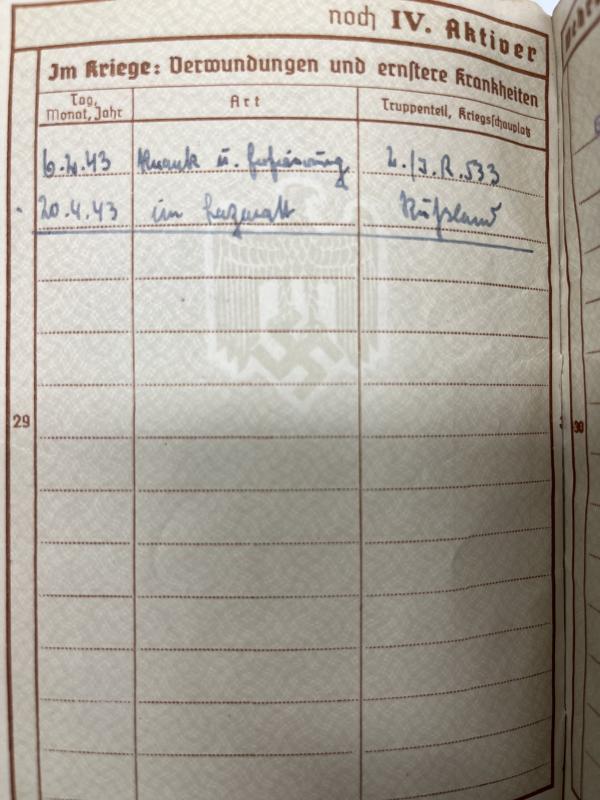 noch IV. Aktiver
Im Kriege: Verwundungen und ernstere Krankheiten
Tag, Monat, Jahr
Art
Truppenteil, Kriegsschauplatz
6.4.43 Krank u. 2./J.R.533
20.4.43 im Lazarett Rußland
29
30